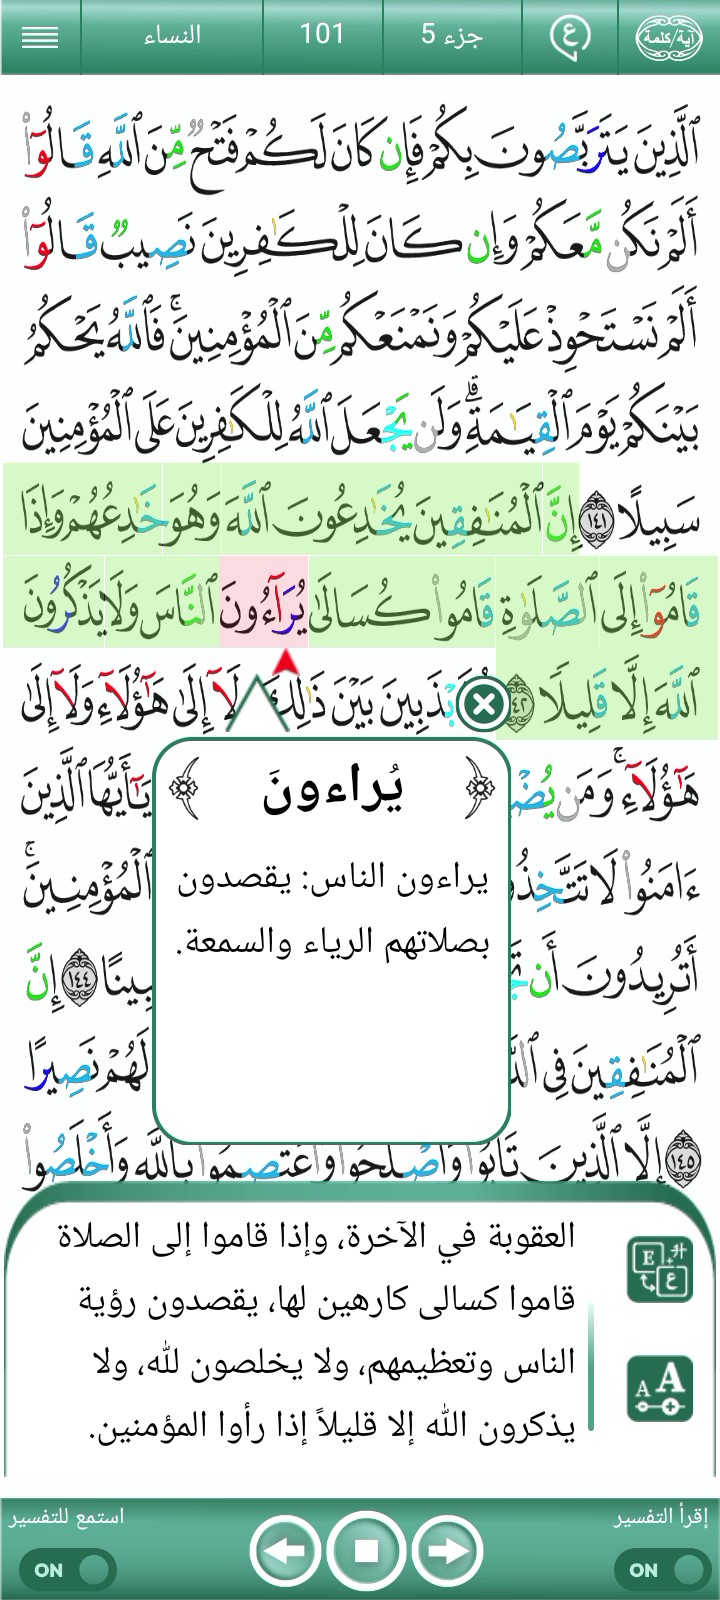 آية/كلمة ع جزء 5 101 النساء
ٱلَّذِينَ يَتَرَبَّصُونَ بِكُمْ فَإِن كَانَ لَكُمْ فَتْحٌ مِّنَ ٱللَّهِ قَالُوٓا۟
أَلَمْ نَكُن مَّعَكُمْ وَإِن كَانَ لِلْكَـٰفِرِينَ نَصِيبٌ قَالُوٓا۟
أَلَمْ نَسْتَحْوِذْ عَلَيْكُمْ وَنَمْنَعْكُم مِّنَ ٱلْمُؤْمِنِينَ ۚ فَٱللَّهُ يَحْكُمُ
بَيْنَكُمْ يَوْمَ ٱلْقِيَـٰمَةِ ۗ وَلَن يَجْعَلَ ٱللَّهُ لِلْكَـٰفِرِينَ عَلَى ٱلْمُؤْمِنِينَ
سَبِيلًا ١٤١ إِنَّ ٱلْمُنَـٰفِقِينَ يُخَـٰدِعُونَ ٱللَّهَ وَهُوَ خَـٰدِعُهُمْ وَإِذَا
قَامُوٓا۟ إِلَى ٱلصَّلَوٰةِ قَامُوا۟ كُسَالَىٰ يُرَآءُونَ ٱلنَّاسَ وَلَا يَذْكُرُونَ
ٱللَّهَ إِلَّا قَلِيلًا بَيْنَ ذَٰلِكَ لَآ إِلَىٰ هَـٰٓؤُلَآءِ وَلَآ إِلَىٰ
هَـٰٓؤُلَآءِ ۚ وَمَن يَـٰٓأَيُّهَا ٱلَّذِينَ
ءَامَنُوا۟ لَا ٱلْمُؤْمِنِينَ ۚ
أَتُرِيدُونَ أَن ١٤٤ إِنَّ
ٱلْمُنَـٰفِقِينَ فِى لَهُمْ نَصِيرًا
١٤٥ إِلَّا ٱلَّذِينَ تَابُوا۟ وَأَصْلَحُوا۟ وَٱعْتَصَمُوا۟ بِٱللَّهِ وَأَخْلَصُوا۟
يُراءونَ
يراءون الناس: يقصدون
بصلاتهم الرياء والسمعة.
العقوبة في الآخرة، وإذا قاموا إلى الصلاة
قاموا كسالى كارهين لها، يقصدون ر�ية
الناس وتعظيمهم، ولا يخلصون لله، ولا
يذكرون الله إلا قليلاً إذا رأوا المؤمنين.
E ع
A A
إقرأ التفسير استمع للتفسير
ON ON